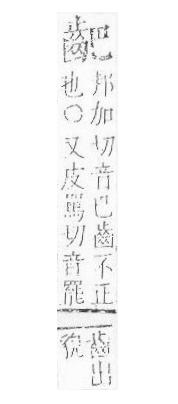 䶕
邦加切音巴齒不正
也○又皮罵切音罷
齒出
貌